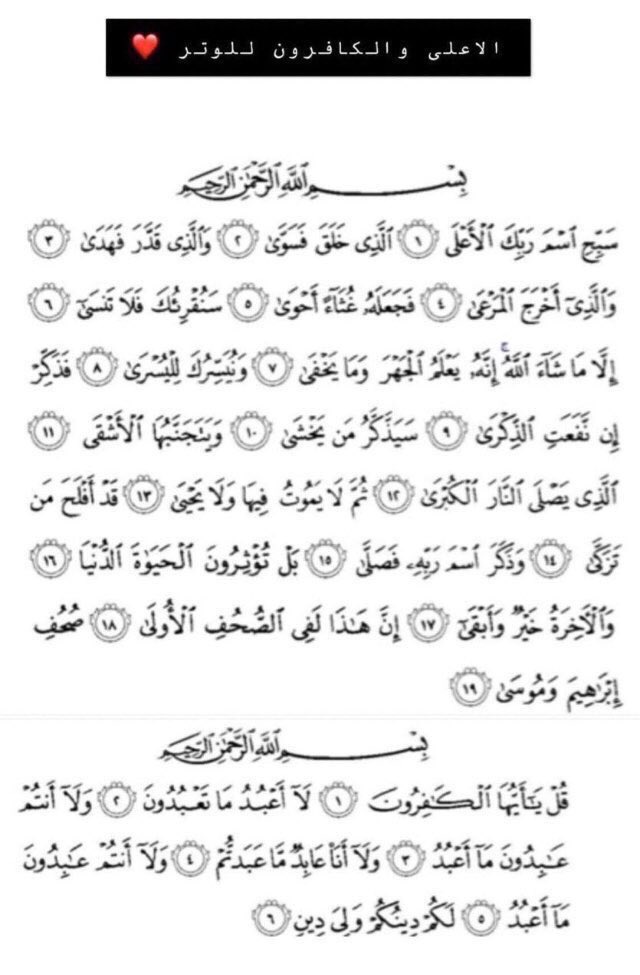 الاعلى والكافرون للوتر ❤️
بِسْمِ ٱللَّهِ ٱلرَّحْمَٰنِ ٱلرَّحِيمِ
سَبِّحِ ٱسْمَ رَبِّكَ ٱلْأَعْلَى ١ ٱلَّذِى خَلَقَ فَسَوَّىٰ ٢ وَٱلَّذِى قَدَّرَ فَهَدَىٰ ٣
وَٱلَّذِىٓ أَخْرَجَ ٱلْمَرْعَىٰ ٤ فَجَعَلَهُۥ غُثَآءً أَحْوَىٰ ٥ سَنُقْرِئُكَ فَلَا تَنسَىٰٓ ٦
إِلَّا مَا شَآءَ ٱللَّهُ ۚ إِنَّهُۥ يَعْلَمُ ٱلْجَهْرَ وَمَا يَخْفَىٰ ٧ وَنُيَسِّرُكَ لِلْيُسْرَىٰ ٨ فَذَكِّرْ
إِن نَّفَعَتِ ٱلذِّكْرَىٰ ٩ سَيَذَّكَّرُ مَن يَخْشَىٰ ١٠ وَيَتَجَنَّبُهَا ٱلْأَشْقَى ١١
ٱلَّذِى يَصْلَى ٱلنَّارَ ٱلْكُبْرَىٰ ١٢ ثُمَّ لَا يَمُوتُ فِيهَا وَلَا يَحْيَىٰ ١٣ قَدْ أَفْلَحَ مَن
تَزَكَّىٰ ١٤ وَذَكَرَ ٱسْمَ رَبِّهِۦ فَصَلَّىٰ ١٥ بَلْ تُؤْثِرُونَ ٱلْحَيَوٰةَ ٱلدُّنْيَا ١٦
وَٱلْـَٔاخِرَةُ خَيْرٌ وَأَبْقَىٰٓ ١٧ إِنَّ هَٰذَا لَفِى ٱلصُّحُفِ ٱلْأُولَىٰ ١٨ صُحُفِ
إِبْرَٰهِيمَ وَمُوسَىٰ ١٩
بِسْمِ ٱللَّهِ ٱلرَّحْمَٰنِ ٱلرَّحِيمِ
قُلْ يَٰٓأَيُّهَا ٱلْكَٰفِرُونَ ١ لَآ أَعْبُدُ مَا تَعْبُدُونَ ٢ وَلَآ أَنتُمْ
عَٰبِدُونَ مَآ أَعْبُدُ ٣ وَلَآ أَنَا۠ عَابِدٌ مَّا عَبَدتُّمْ ٤ وَلَآ أَنتُمْ عَٰبِدُونَ
مَآ أَعْبُدُ ٥ لَكُمْ دِينُكُمْ وَلِىَ دِينِ ٦